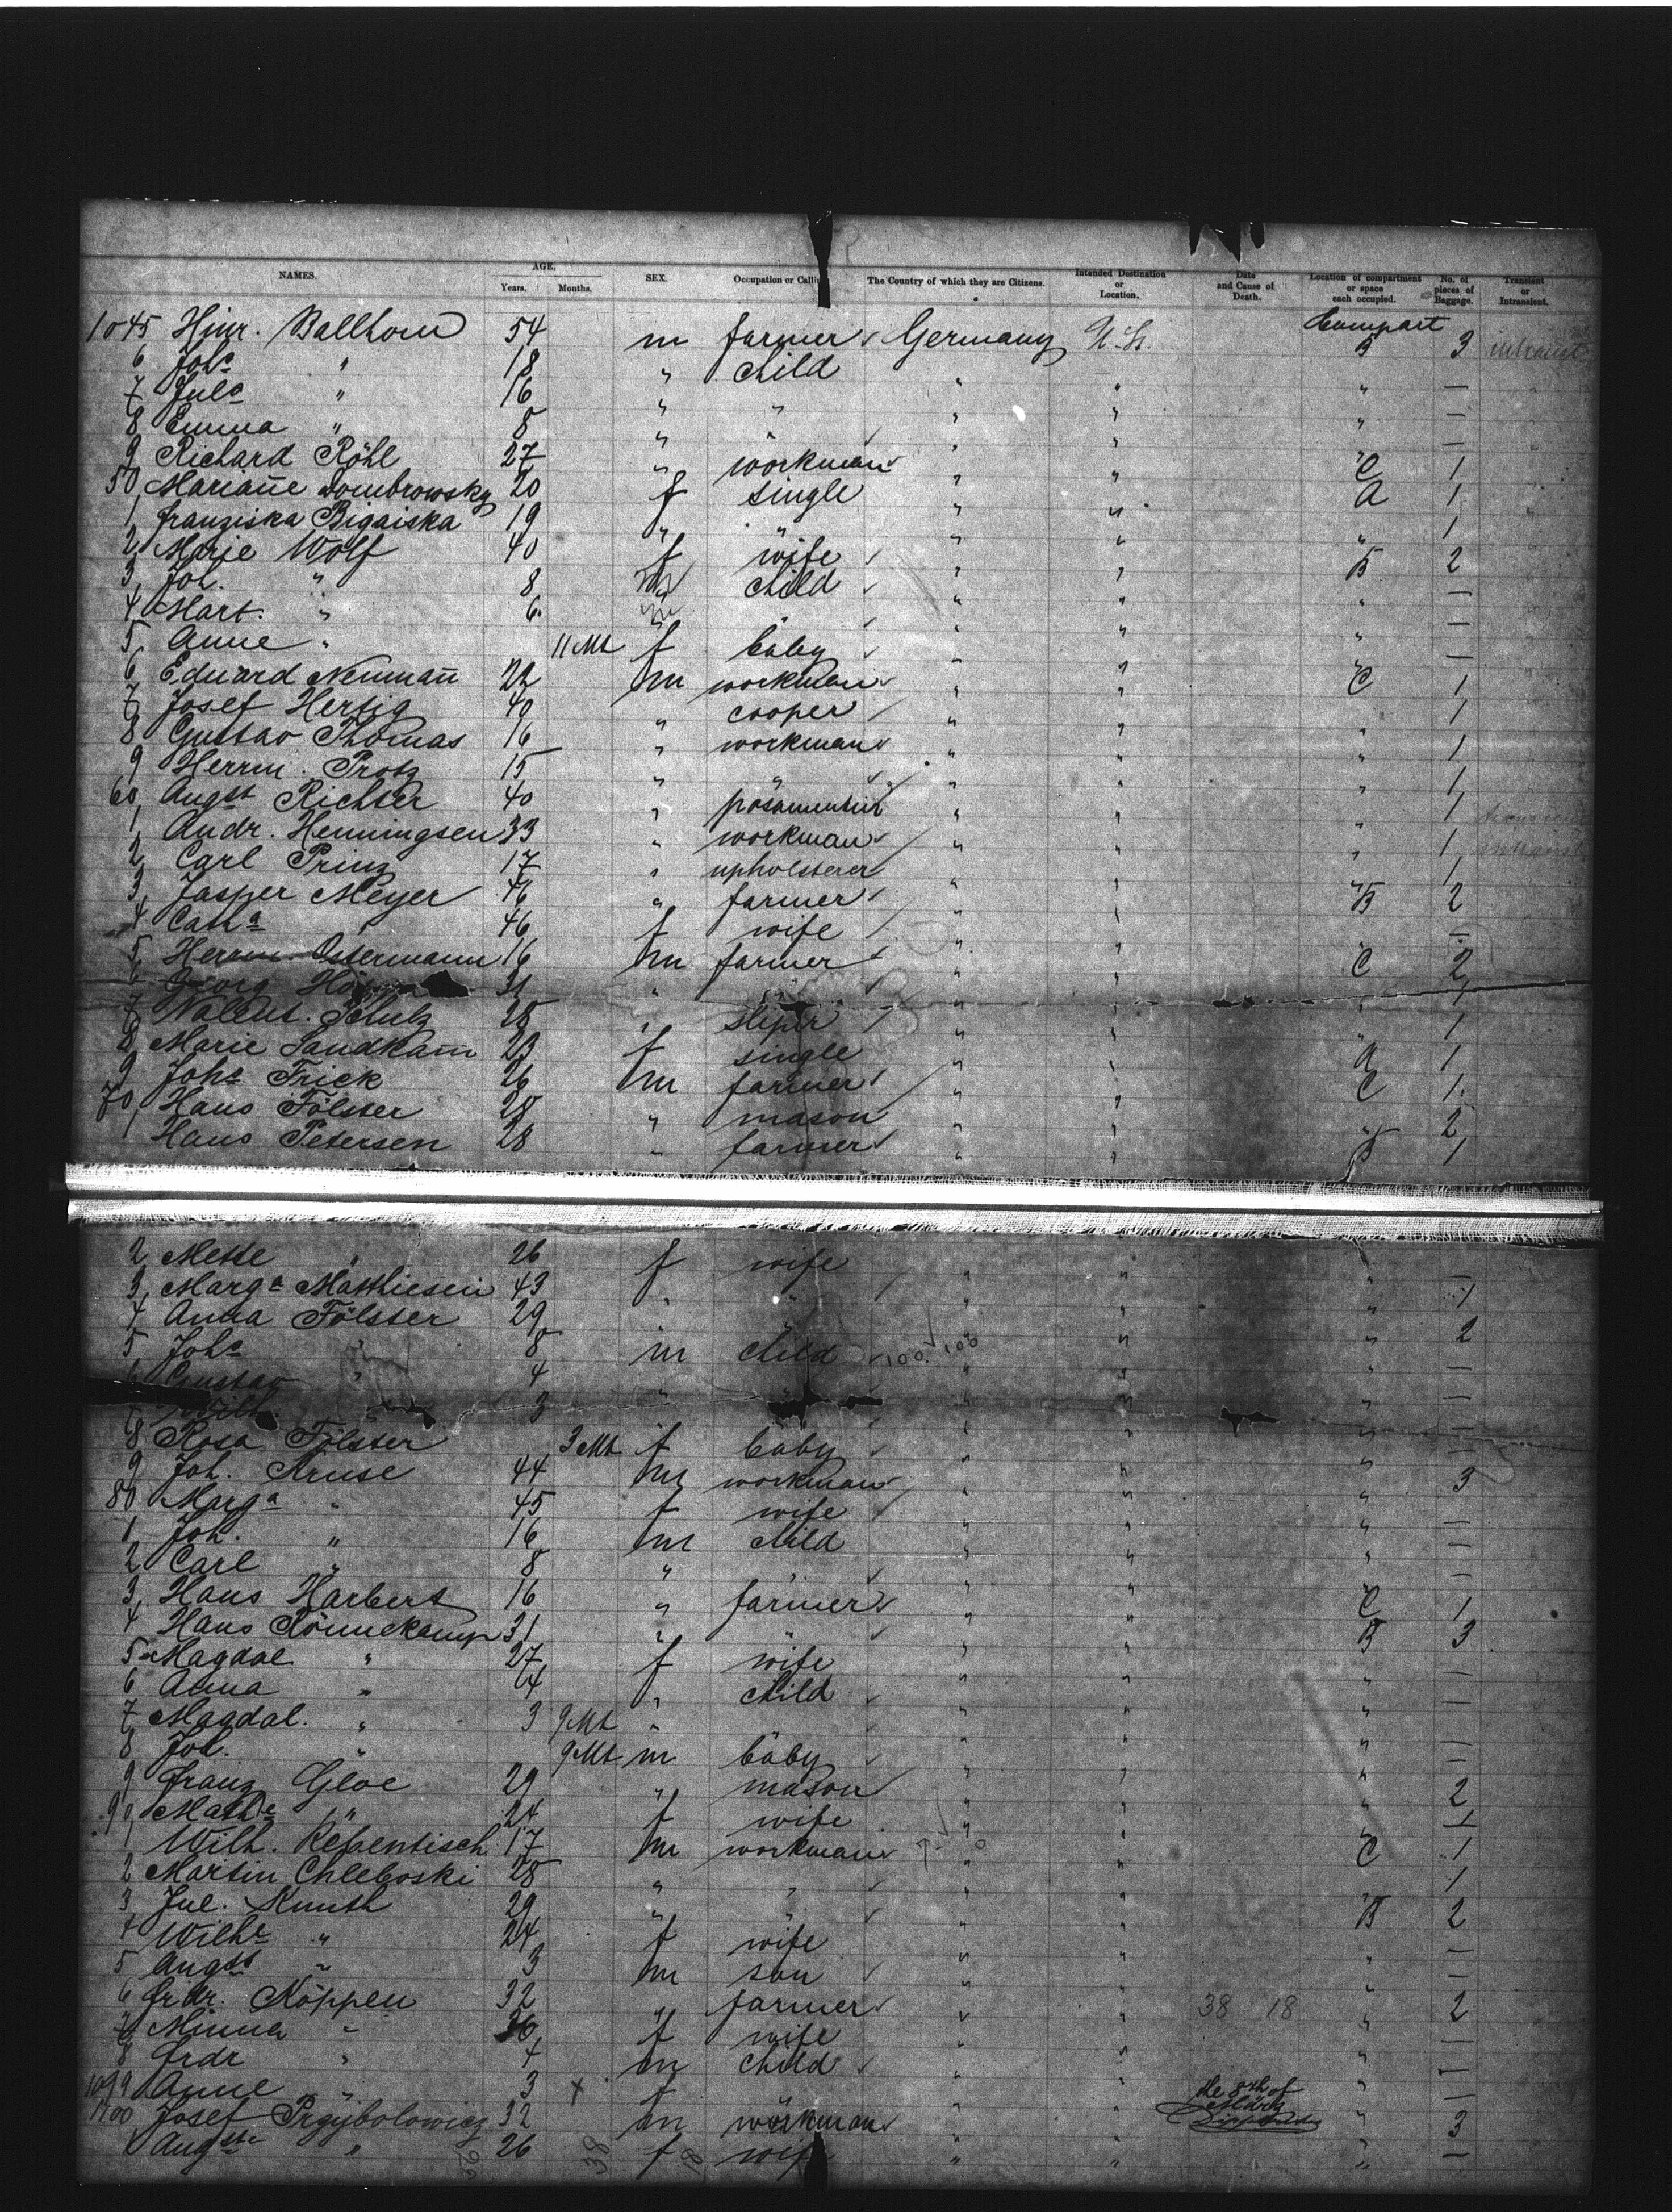 NAMES. AGE. Years. Months. SEX. Occupation or Calling The Country of which they are Citizens. Intended Destination or Location. Date and Cause of Death. Location of compartment or space each occupied. No. of pieces of Baggage. Transient or Intransient.
1045 Hinr. Ballhorn 54 m farmer Germany U.S. Compart B 3 intransit
6 Johs " 18 " child " " " —
7 Juls " 16 " " " " " —
8 Emma " 8 " " " " —
9 Richard Röhl 27 " workman " " C 1
50 Marianne Dombrowsky 20 f single " " A 1
1 Franziska Bigaiska 19 " " " " " 1
2 Marie Wolf 40 f wife " " B 2
3 Joh. " 8 m child " " " —
4 Mart. " 6 " " " " —
5 Anne " 11 Mt f baby " " " —
6 Eduard Neumann 22 m workman " " C 1
7 Josef Hertig 40 " cooper " " 1
8 Gustav Thomas 16 " workman " " " 1
9 Herrm. Protz 15 " " " " " 1
60 Augst Richter 40 " " " " 1
1 Andr. Henningsen 33 " workman " " " 1 intransit
2 Carl Prinz 17 " upholsterer " " 1
3 Jasper Meyer 46 " farmer " " B 2
4 Catha " 46 f wife " " " —
5 Herrm. Ostermann 16 m farmer " " C 2
6 Georg 31 " " " " 1
7 Valent. Schulz 28 " " " " 1
8 Marie Sandkamm 23 f single " " A 1
9 Johs Frick 26 m farmer " " C 1
70 Hans Fölster 28 " mason " " " 2
1 Hans Petersen 28 " farmer " " B 1
2 Mette " 26 f wife " " " —
3 Marga Matthiesen 43 " " " " " 1
4 Anna Fölster 29 " " " " " 2
5 Johs " 8 m child 100 100 " " " —
6 Gustav " 4 " " " " " —
7 Wilh. 3 " " " " " —
8 Rosa Fölster 3 Mt f baby " " " —
9 Joh. Kruse 44 m workman " " " 3
80 Marga " 45 f wife " " " —
1 Joh. " 16 m child " " " —
2 Carl " 8 " " " " " —
3 Hans Harbert 16 " farmer " " C 1
4 Hans Rönnekamp 31 " " " " B 3
5 Magdal " 27 f wife " " " —
6 Anna " 4 " child " " " —
7 Magdal. " 3 9 Mt " " " " —
8 Joh. " 9 Mt m baby " " " —
9 Franz Gloe 29 " mason " " " 2
90 " 24 f wife " " " 1
1 Wilh. Rebentisch 17 m workman " " C 1
2 Martin Chleboski 28 " " " " 1
3 Jul. Kunth 29 " " " " B 2
4 Wilhe " 24 f wife " " " —
5 Augst " 3 m son " " " —
6 Frdr. Köppen 32 " farmer " " 38 18 " 2
7 Minna " 30 f wife " " " —
8 Frdr " 4 m child " " " —
1099 Anne " 3 + f " " the 8th of März " —
1100 Josef Przybolowicz 32 m workman " " " 3
1 Augste " 26 38 f 18 wife " " " —